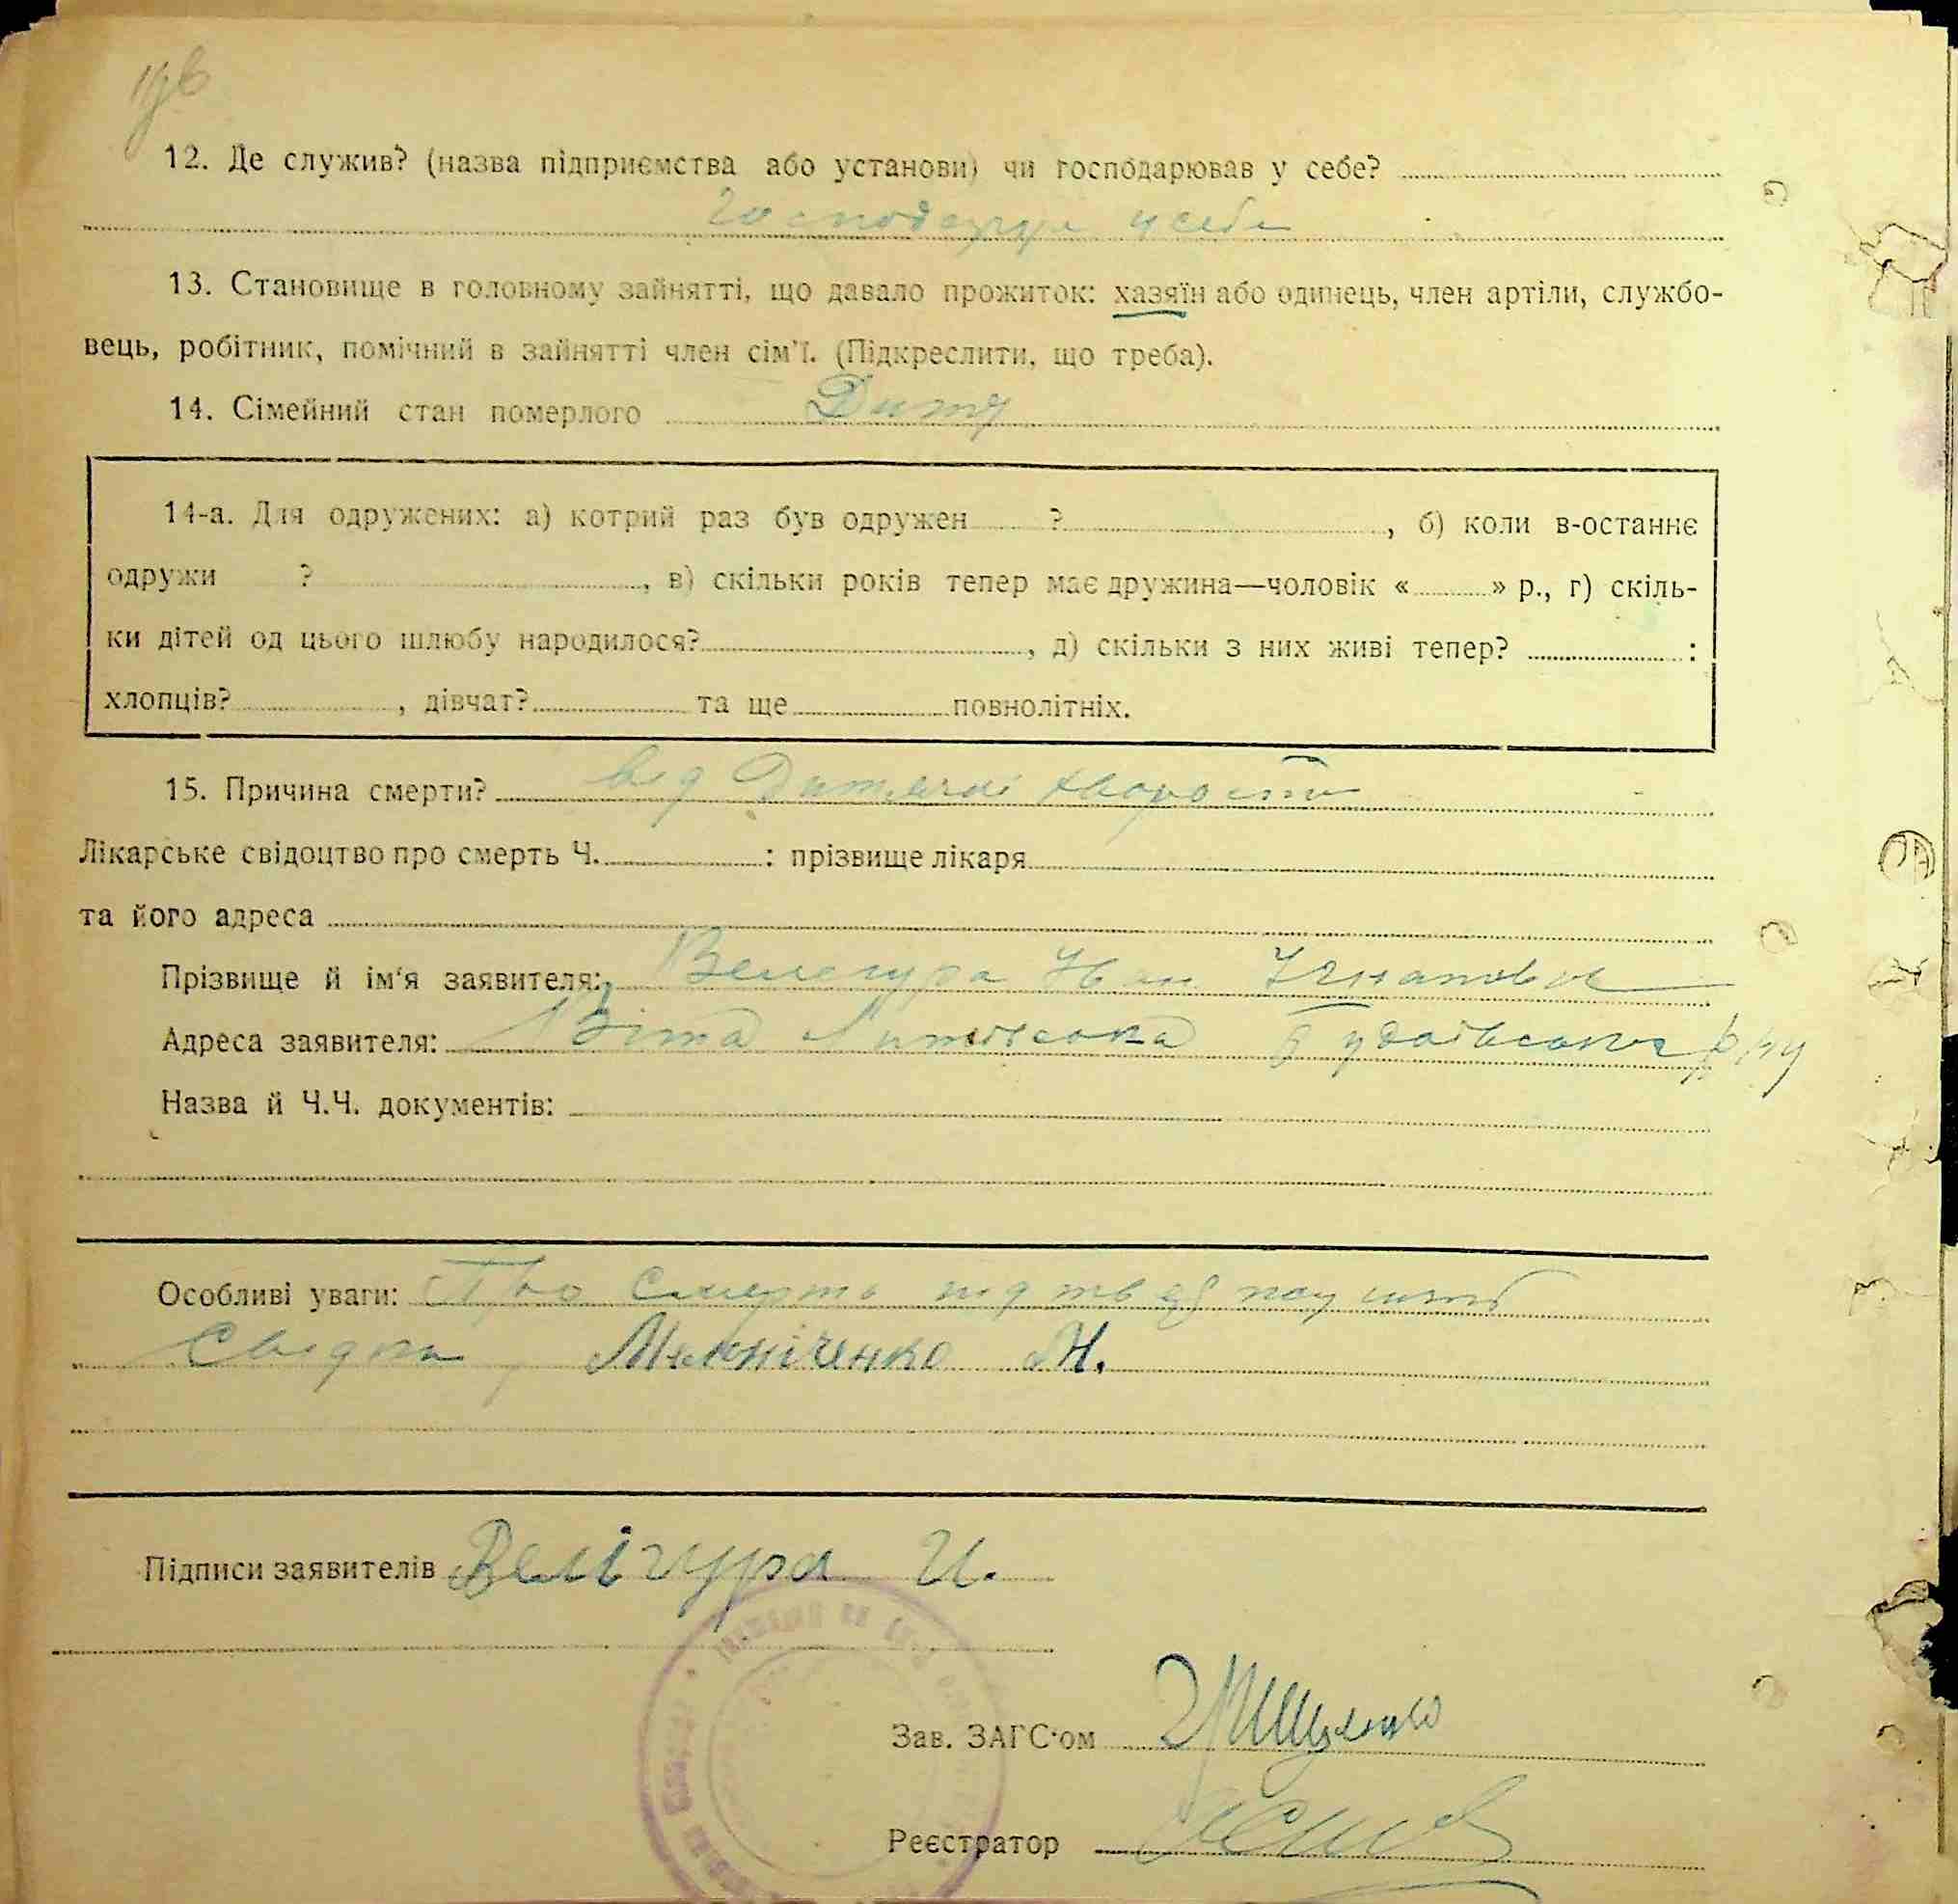 12. Де служив? (назва підприємства або установи) чи господарював у себе?
Господарує у себе
13. Становище в головному зайнятті, що давало прожиток: хазяїн або одинець, член артіли, службо-
вець, робітник, помічний в зайнятті член сім'ї. (Підкреслити, що треба).
14. Сімейний стан померлого Дитя
14-а. Для одружених: а) котрий раз був одружен ? , б) коли в-останнє
одружи ? , в) скільки років тепер має дружина—чоловік « » р., г) скіль-
ки дітей од цього шлюбу народилося? , д) скільки з них живі тепер? :
хлопців? , дівчат? та ще повнолітніх.
15. Причина смерти? від Дитячої хворости
Лікарське свідоцтво про смерть Ч. : прізвище лікаря
та його адреса
Прізвище й ім'я заявителя: Велегура Ив.
Адреса заявителя: Віта Литовська Будаївського р/ну
Назва й Ч.Ч. документів:
Особливі уваги: Про смерть
Свідки Мельніченко М.
Підписи заявителів Велігура И.
Зав. ЗАГС'ом
Реєстратор